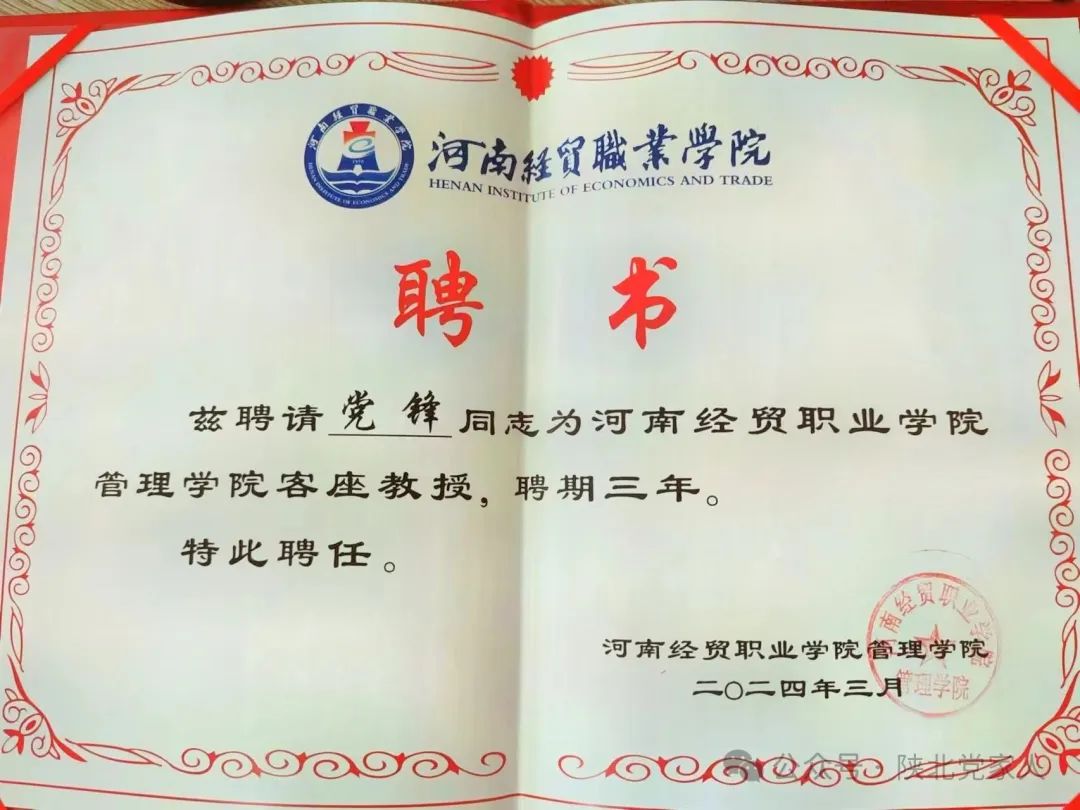 河南經貿職業學院
HENAN INSTITUTE OF ECONOMICS AND TRADE
河南經貿職業學院
HENAN INSTITUTE OF ECONOMICS AND TRADE
聘书
兹聘请 党锋 同志为河南经贸职业学院
管理学院客座教授，聘期三年。
特此聘任。
河南经贸职业学院管理学院
二〇二四年三月
河南经贸职业学院
管理学院
公众号·陕北党家人